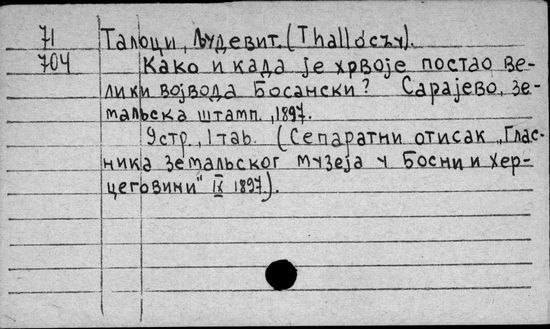 71 Талоци, Људевит. (Thallóczy).
704 Како и када је хрвоје постао ве-
лики војвода Босански? Сарајево, зе-
маљска штамп., 1897.
9стр., 1 таб. (Сепаратни отисак „Глас-
ника земаљског музеја у Босни и Хер-
цеговини" IX 1897.).